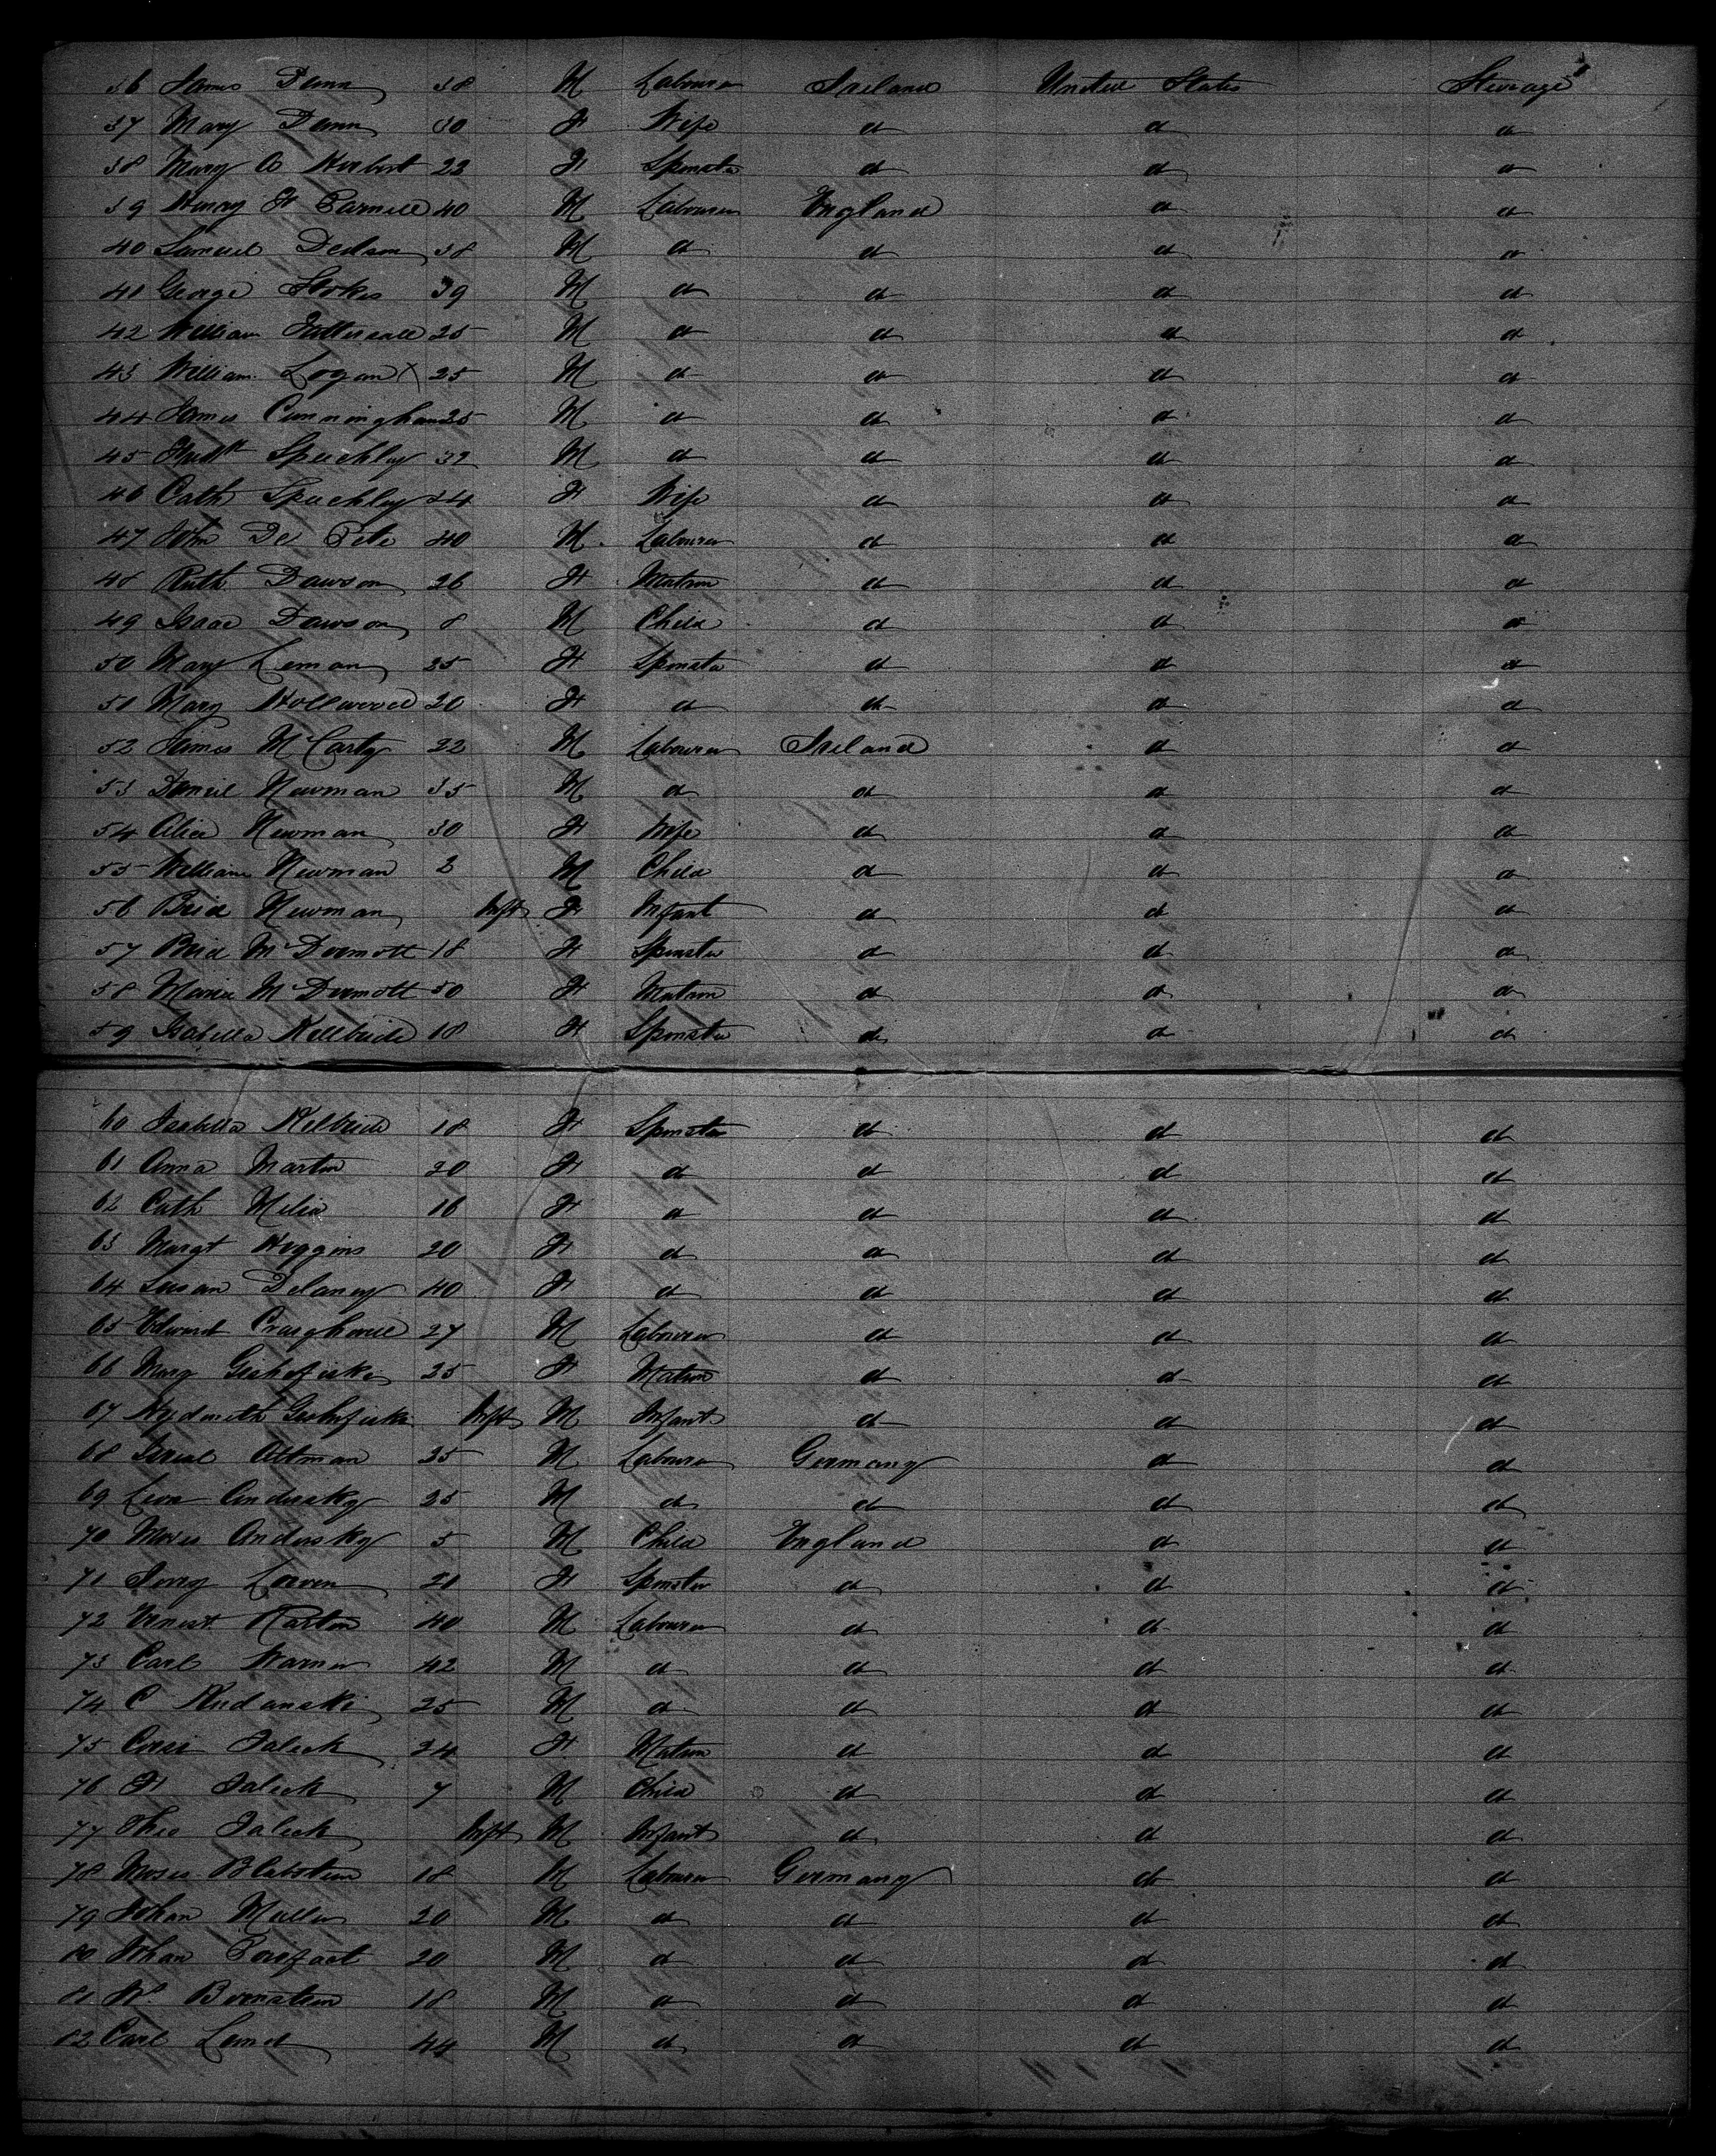 36 James Dunn 38 M Labourer Ireland United States Steerage
37 Mary Dunn 30 F Wife do do do
38 Mary A Herbert 22 F Spinster do do do
39 Henry H Parnell 40 M Labourer England do do
40 Samuel Dedson 38 M do do do do
41 George Stokes 39 M do do do do
42 William Tattersall 25 M do do do do
43 William Logan X 25 M do do do do
44 James Cunningham 25 M do do do do
45 Fredk Speechley 32 M do do do do
46 Cath Speechley 24 F Wife do do do
47 John De 40 M Labourer do do do
48 Ruth Dawson 26 F Matron do do do
49 Isaac Dawson 8 M Child do do do
50 Mary Leman 25 F Spinster do do do
51 Mary Hollwood 20 F do do do do
52 James McCarty 22 M Labourer Ireland do do
53 Daniel Newman 35 M do do do do
54 Alice Newman 30 F Wife do do do
55 William Newman 2 M Child do do do
56 Brid Newman Inft F Infant do do do
57 Brid McDermott 18 F Spinster do do do
58 Maria McDermott 50 F Matron do do do
59 Isabella Killbride 18 F Spinster do do do
60 Isabella Kelbride 18 F Spinster do do do
61 Anna Martin 20 F do do do do
62 Cath Melia 16 F do do do do
63 Margt Huggins 20 F do do do do
64 Susan Delaney 40 F do do do do
65 Edward Craighouse 27 M Labourer do do do
66 Mary 25 F Matron do do do
67 Inft M Infant do do do
68 Altman 35 M Labourer Germany do do
69 Andersky 25 M do do do do
70 Moses Andersky 5 M Child England do do
71 20 F Spinster do do do
72 Ernest 40 M Labourer do do do
73 Carl Warner 42 M do do do do
74 C Rudanski 25 M do do do do
75 Faleck 24 F Matron do do do
76 F Faleck 7 M Child do do do
77 Theo Faleck Inft M Infant do do do
78 Moses 18 M Labourer Germany do do
79 Johan Muller 20 M do do do do
80 Johan 20 M do do do do
81 Wm 18 M do do do do
82 Carl 44 M do do do do